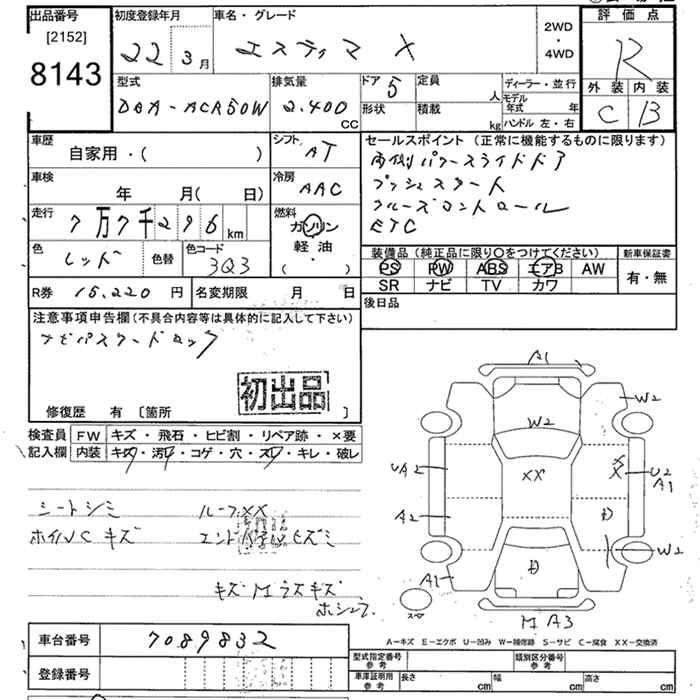 出品番号
[2152]
8143
初度登録年月
22 3月
車名・グレード
エスティマ X
2WD
・
4WD
評価点
R
外装 内装
C B
型式
DBA-ACR50W
排気量
2.400
CC
ドア 5
形状
定員
人
積載
kg
ディーラー・並行
モデル
年式 年
ハンドル 左・右
車歴
自家用・( )
シフト
AT
車検
年 月( 日)
冷房
AAC
走行
7万7千296km
燃料
ガソリン
軽油
( ・ )
色
レッド
色替
色コード
3Q3
R券 15,220 円
名変期限 月 日
セールスポイント (正常に機能するものに限ります)
両側パワースライドドア
プッシュスタート
クルーズコントロール
ETC
装備品(純正品に限り○をつけてください)
PS PW ABS エアB AW
SR ナビ TV カワ
新車保証書
有・無
後日品
注意事項申告欄(不具合内容等は具体的に記入して下さい)
ナビパスワードロック
初出品
修復歴 有 〔箇所 〕
検査員
記入欄
FW キズ・飛石・ヒビ割・リペア跡・×要
内装 キズ・汚レ・コゲ・穴・スレ・キレ・破レ
シートシミ ルーフXX
ホイルCキズ
ヒズミ
キズ
A1
W2
W2
XX
UA2
U2
A1
A2
D
W2
D
A1
スペア
M A3
A－キズ E－エクボ U－凹み W－補修跡 S－サビ C－腐食 XX－交換済
車台番号 7089832
登録番号
型式指定番号
参考
類別区分番号
参考
車庫証明用
参考
長さ cm 幅 cm 高さ cm